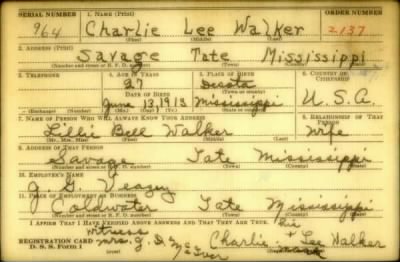 SERIAL NUMBER 1. NAME (Print) ORDER NUMBER
964 Charlie Lee Walker 2137
(First) (Middle) (Last)
2. ADDRESS (Print)
Savage Tate Mississippi
(Number and street or R. F. D. number) (Town) (County) (State)
3. TELEPHONE 4. AGE IN YEARS 5. PLACE OF BIRTH 6. COUNTRY OF CITIZENSHIP
27 Desota
DATE OF BIRTH (Town or county)
June 13, 1913 Mississippi U.S.A.
(Exchange) (Number) (Mo.) (Day) (Yr.) (State or country)
7. NAME OF PERSON WHO WILL ALWAYS KNOW YOUR ADDRESS 8. RELATIONSHIP OF THAT PERSON
Lillie Bell Walker Wife
(Mr., Mrs., Miss) (First) (Middle) (Last)
9. ADDRESS OF THAT PERSON
Savage Tate Mississippi
(Number and street or R. F. D. number) (Town) (County) (State)
10. EMPLOYER'S NAME
J. G. Veazey
11. PLACE OF EMPLOYMENT OR BUSINESS
Coldwater Tate Mississippi
(Number and street or R. F. D. number) (Town) (County) (State)
I AFFIRM THAT I HAVE VERIFIED ABOVE ANSWERS AND THAT THEY ARE TRUE.
witness his
REGISTRATION CARD Mrs. Charlie + Lee Walker
D. S. S. Form 1 mark